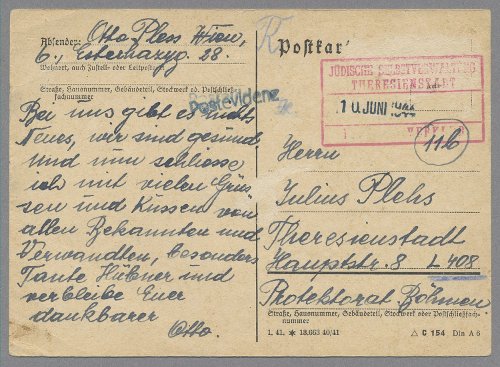 Absender: Otto Pless Wien,
6., Esterházyg. 28.
Wohnort, auch Zustell- oder Leitpostamt
Straße, Hausnummer, Gebäudeteil, Stockwerk od. Postschließ-
fachnummer
Postevidenz
Bei uns gibt es nichts
Neues, wir sind gesund
und nun schliesse
ich mit vielen Grüs-
sen und Küssen von
allen Bekannten und
Verwandten, besonders
Tante Hübner und
verbleibe Euer
dankbarer
Otto.
Postkar
JÜDISCHE SELBSTVERWALTUNG
THERESIENSTADT
10. JUNI 1944
116
Herrn
Julius Plehs
Theresienstadt
Hauptstr. 8 L 408
Protektorat Böhmen
Straße, Hausnummer, Gebäudeteil, Stockwerk oder Postschließfach-
nummer
1. 41. * 18.663 40/41
△ C 154 Din A 6